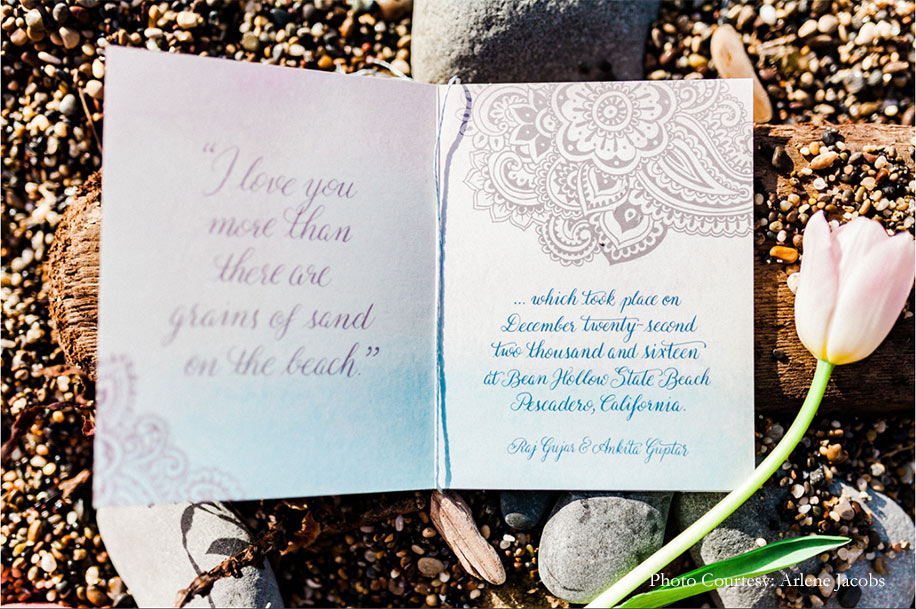 “I love you
more than
there are
grains of sand
on the beach.”
... which took place on
December twenty-second
two thousand and sixteen
at Bean Hollow State Beach
Pescadero, California.
Raj Gujar & Ankita Guptar
Photo Courtesy: Arlene Jacobs